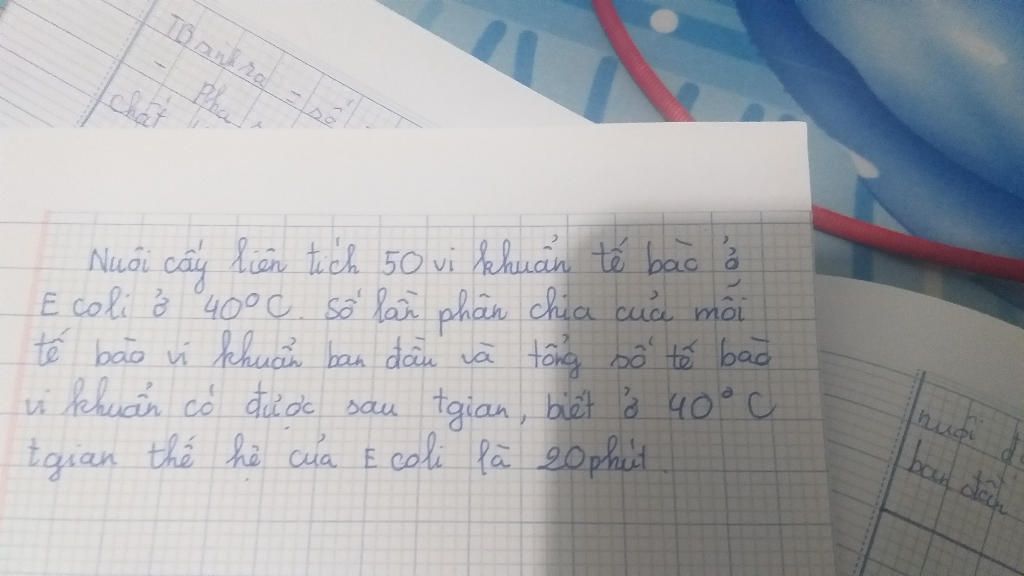 TB sinh ra = số
- Pha
chất
Nuôi cấy liên tích 50 vi khuẩn tế bào ở
E coli ở 40°C. Số lần phân chia của mỗi
tế bào vi khuẩn ban đầu và tổng số tế bào
vi khuẩn có được sau tgian, biết ở 40°C
tgian thế hệ của E coli là 20 phút.
nuôi
ban đầu